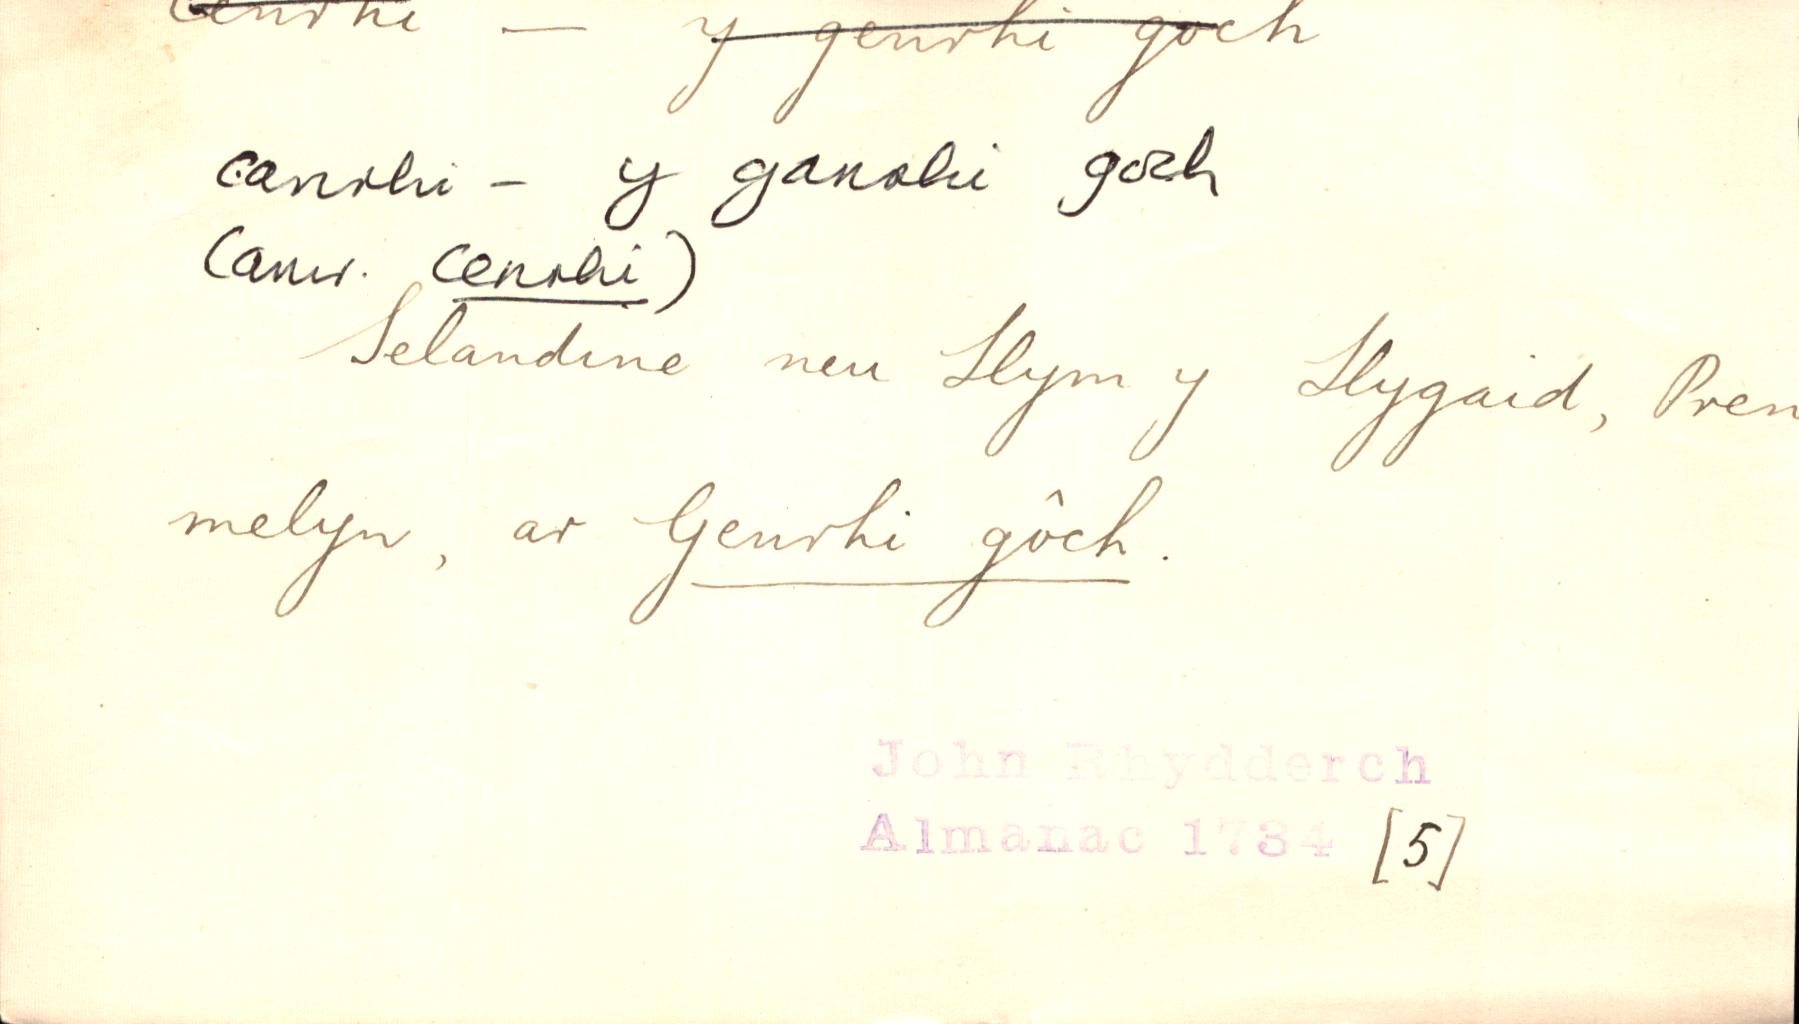 cenrhi — y genrhi goch
canrhi - y ganrhi goch
(amr. cenrhi)
Selandine neu Llym y Llygaid, Pren
melyn, ar Genrhi gôch.
John Rhydderch
Almanac 1734 [5]